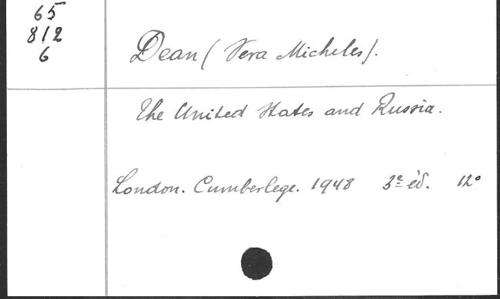 65
812
6
Dean (Vera Micheles).
The United States and Russia.
London. Cumberlege. 1948 3e éd. 12°